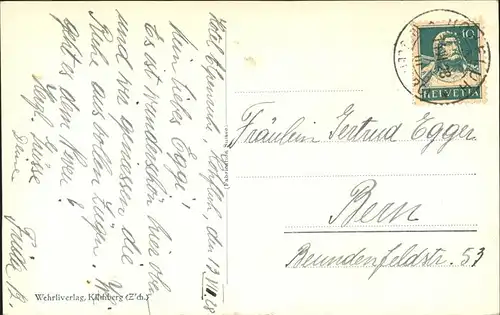 Hotel Alpenruh, Hohfluh, den 13. VIII. 28
Mein liebes Eggi!
Es ist wunderschön hier oben
und wir geniessen die
Ruhe aus vollen Zügen. Wie
geht es dem Heuen?
Herzl. Grüsse
Deine
Frida B.
Wehrliverlag, Kilchberg (Zch.)
10
HELVETIA
Fräulein Gertrud Egger
Bern
Beundenfeldstr. 53